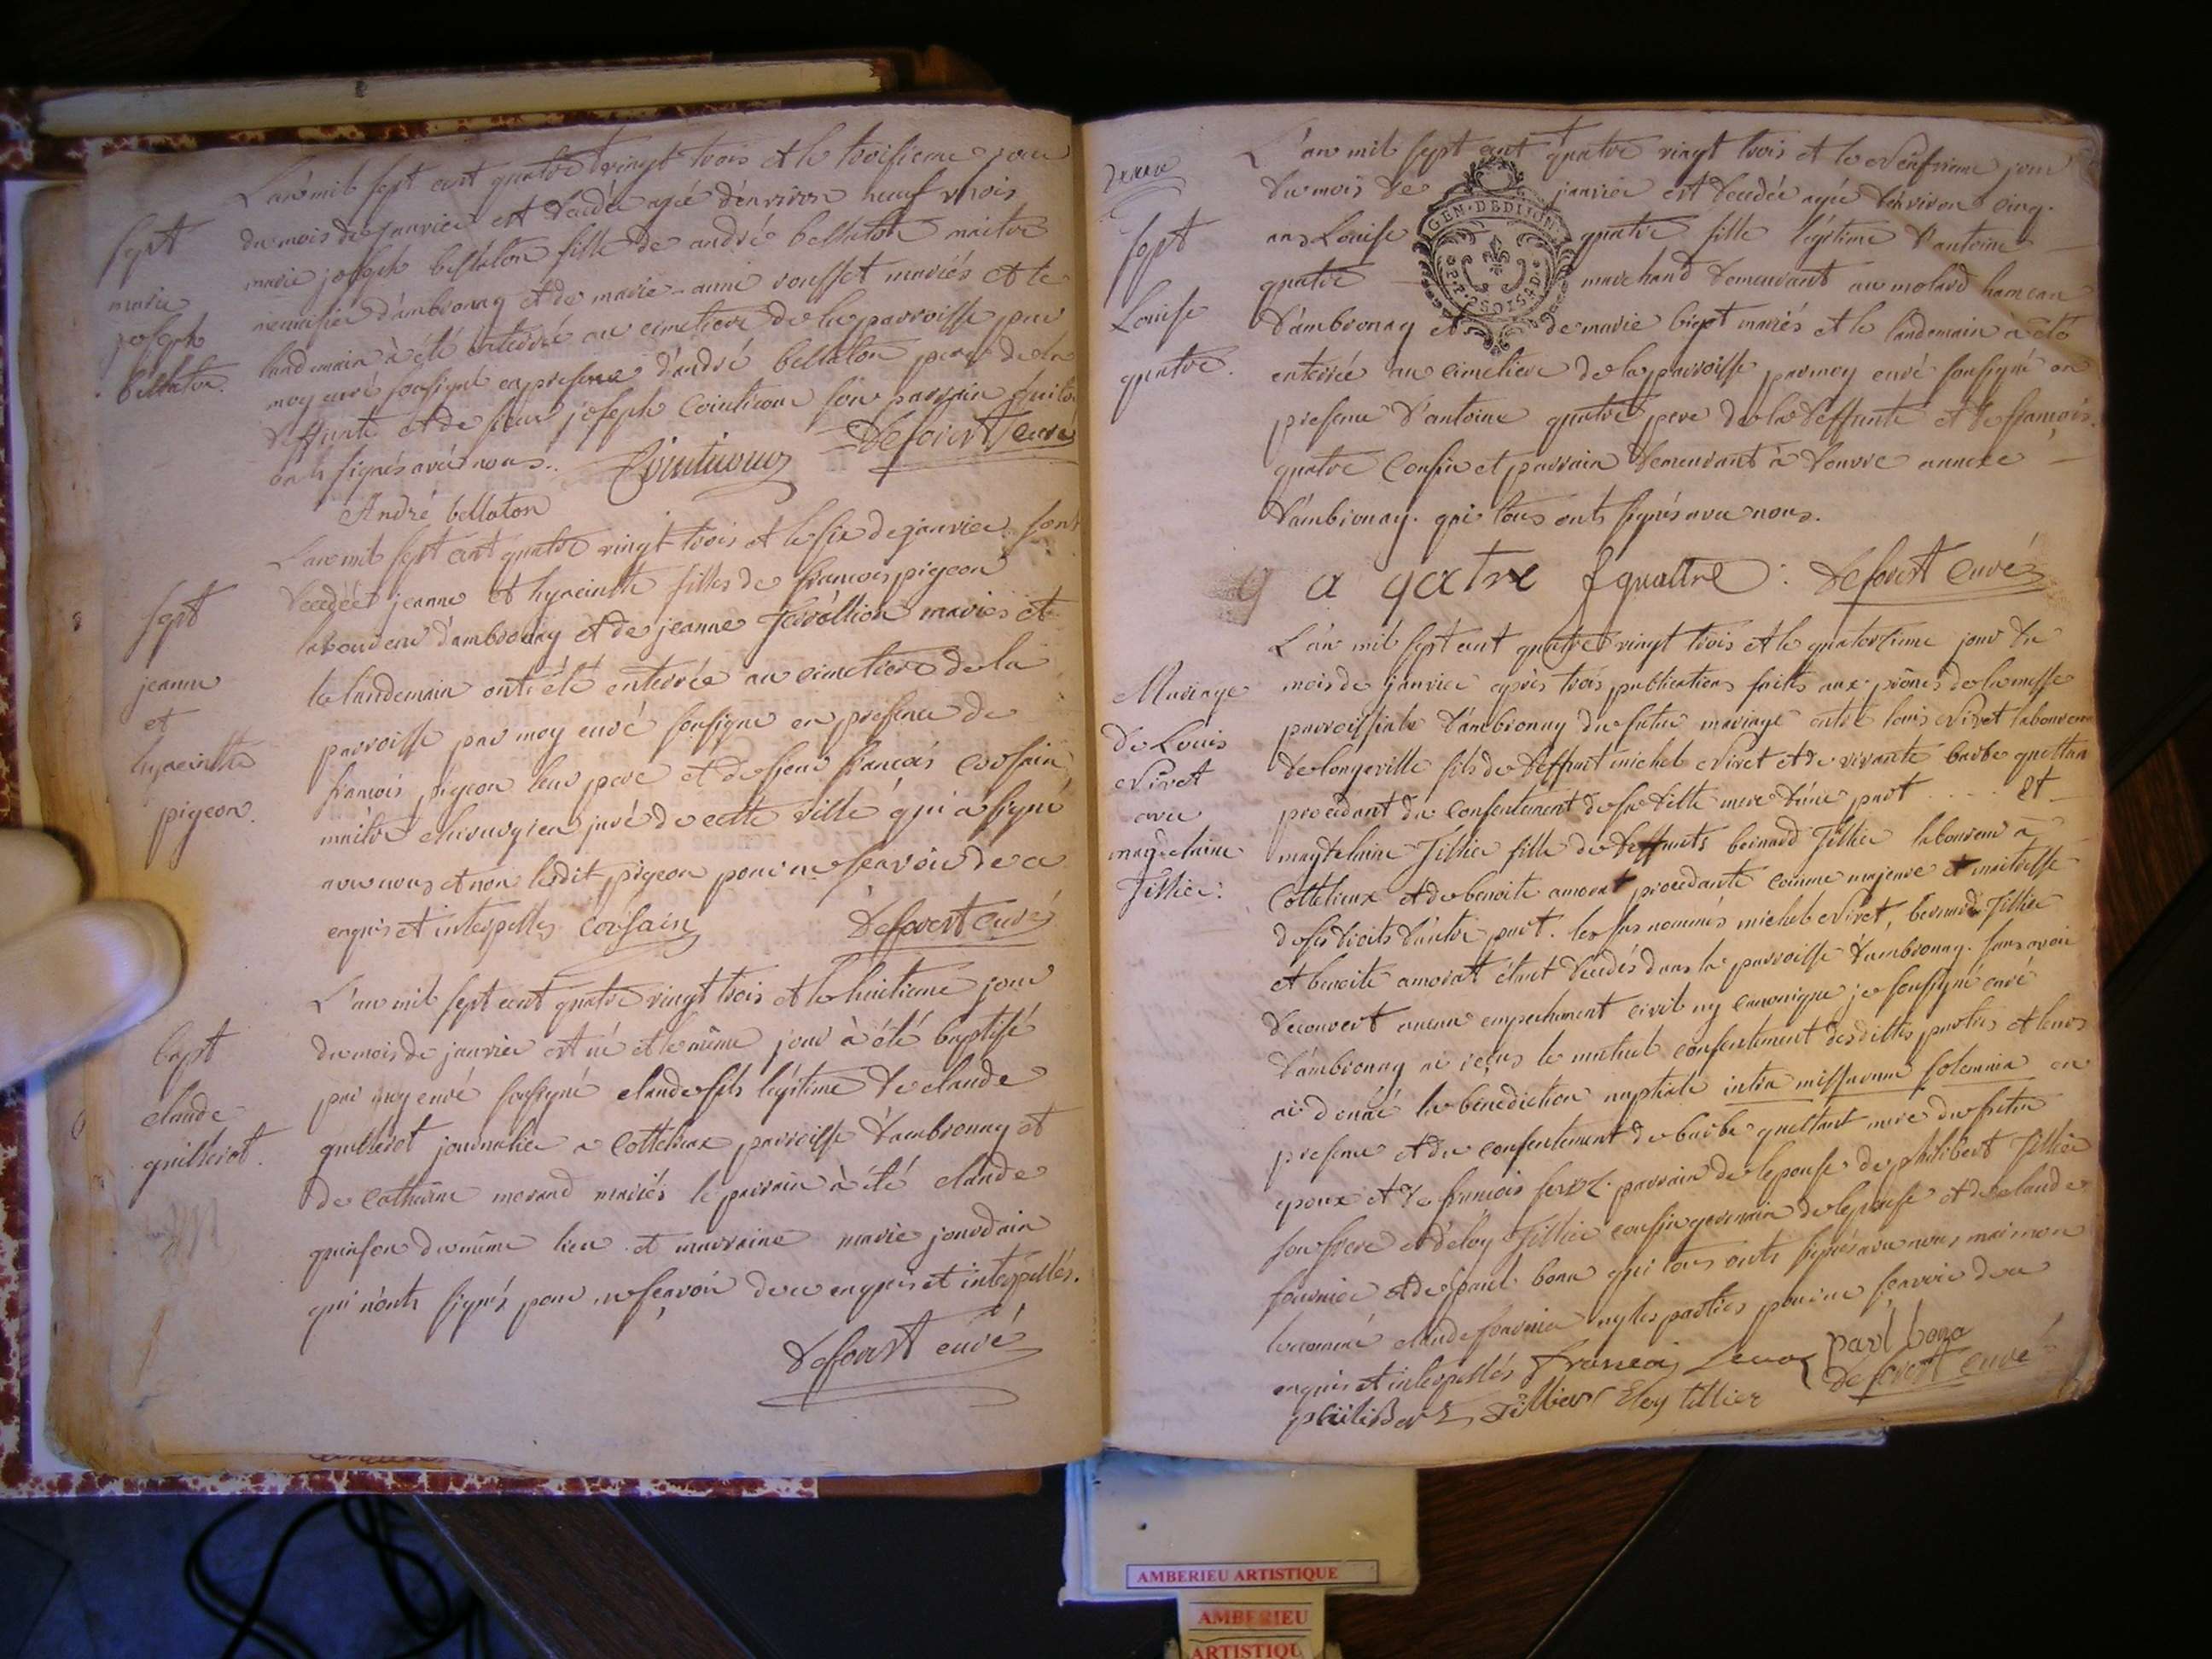 L'an mil sept cent quatre vingt trois et le troisieme jour
du mois de janvier est decedée agée d'environ neuf mois
marie joseph bellaton fille de andré bellaton maitre
menuisier d'ambronay et de marie anne rousset mariés et le
landemain à été enterrée au cimetiere de la parroisse par
moy curé sousigné en presence d'andré bellaton pere de la
deffunte et de sieur joseph Cointicour son parrain qui
onts signés avec nous.
Deforest curé
André bellaton
sept
marie
joseph
bellaton.
L'an mil sept cent quatre vingt trois et le six de janvier sont
decedées jeanne et hyacinthe filles de francois pigeon
laboureur d'ambronay et de jeanne mariés et
le landemain onts été enterrée au cimetiere de la
parroisse par moy curé sousigné en presence de
francois pigeon leur pere et de sieur francois Corsain
maitre chirurgien juré de cette ville qui a signé
avec nous et non ledit pigeon pour ne sçavoir de ce
enquis et interpellés Corsain Deforest curé
sept
jeanne
et
hyacinthe
pigeon.
L'an mil sept cent quatre vingt trois et le huitieme jour
du mois de janvier est né et le même jour à été baptisé
par moy curé sousigné claude fils légitime de claude
guilleret journalier a Cottelieux parroisse d'ambronay et
de Catherine morand mariés le parrain à été claude
quinson du même lieu et marraine marie jourdain
qui n'onts signés pour ne sçavoir de ce enquis et interpellés.
Deforest curé
bapt
claude
guilleret.
deux
L'an mil sept cent quatre vingt trois et le jour
du mois de janvier est decedée agée d'environ cinq
ans Louise quatre fille légitime d'antoine
quatre marchand demeurant au molard hameau
d'ambronay et de marie bigot mariés et le landemain à été
enterrée au cimetiere de la parroisse par moy curé sousigné en
presence d'antoine quatre pere de la deffunte et de françois
quatre Cousin et parrain demeurant à douvre annexe
d'ambronay. qui tous onts signés avec nous.
a qatre f quattre Deforest Curé
GEN·DE DIJON
sept
Louise
quatre.
L'an mil sept cent quatre vingt trois et le quatorzieme jour du
mois de janvier après trois publications faites aux prônes de la messe
parroissiale d'ambronay du futur mariage entre louis Vivet laboureur
de longeville fils de deffunt michel Vivet et de vivante barbe guettan
procedant du consentement de sa ditte mere d'une part et
magdelaine Tillier fille de deffunts bernard Tillier laboureur à
Cottelieux et de benoite amorat procedante comme majeure et maitresse
de ses droits d'autre part. les sus nommés michel Vivet, bernard Tillier
et benoite amorat étant decedés dans la parroisse d'ambronay. sans avoir
decouvert aucun empechement civil ny canonique je sousigné curé
d'ambronay ai reçus le mutuel consentement desdittes parties et leurs
ai donné la bénédiction nuptiale intra missarum solemnia en
presence et du consentement de barbe guettant mere du futur
epoux et de francois parrain de lepouse de philibert Tillier
son frere et d'eloy Tillier cousin germain de lepouse et de claude
fournier et de paul bona qui tous onts signés avec nous mais non
claude fournier ny les parties pour ne sçavoir de ce
enquis et interpellés francois paul bona
philibert tillier Eloy tillier Deforest curé
Mariage
de Louis
Vivet
avec
magdelaine
Tillier.
AMBERIEU ARTISTIQUE
AMBERIEU
ARTISTIQU